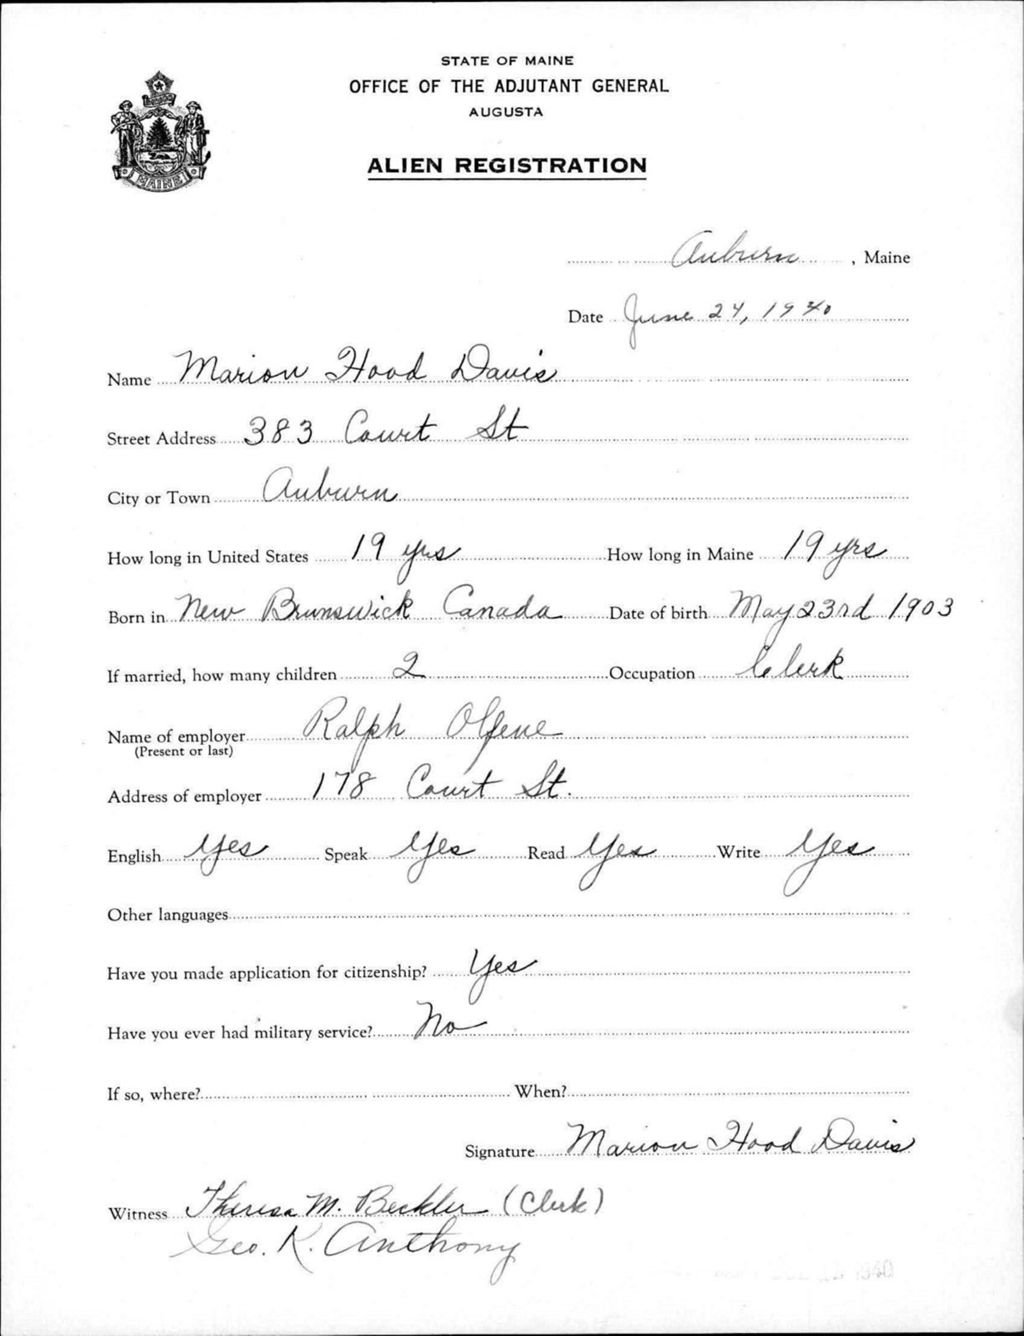 STATE OF MAINE
OFFICE OF THE ADJUTANT GENERAL
AUGUSTA
ALIEN REGISTRATION
MAINE
Auburn, Maine
Date June 24, 1940
Name Marion Hood Davis
Street Address 383 Court St
City or Town Auburn
How long in United States 19 yrs How long in Maine 19 yrs
Born in New Brunswick Canada Date of birth May 23rd 1903
If married, how many children 2 Occupation Clerk
Name of employer Ralph Olfene
(Present or last)
Address of employer 178 Court St.
English Yes Speak Yes Read Yes Write Yes
Other languages
Have you made application for citizenship? Yes
Have you ever had military service? No
If so, where? When?
Signature Marion Hood Davis
Witness Theresa M. Beckler (Clerk)
Geo. K. Anthony